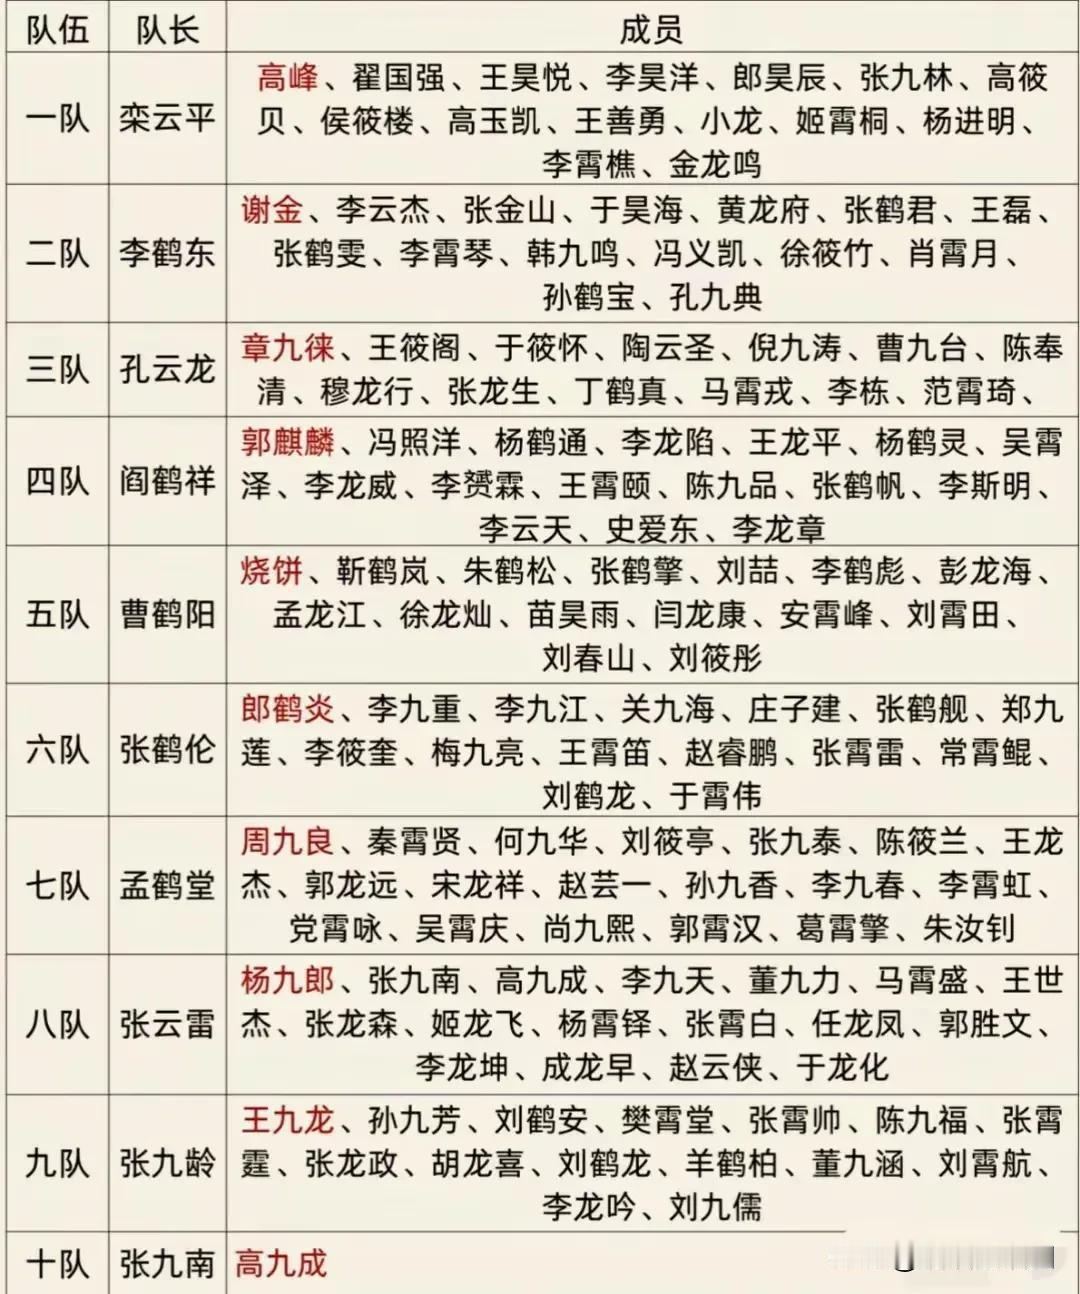 队伍 队长 成员
高峰、翟国强、王昊悦、李昊洋、郎昊辰、张九林、高筱
一队 栾云平 贝、侯筱楼、高玉凯、王善勇、小龙、姬霄桐、杨进明、
李霄樵、金龙鸣
谢金、李云杰、张金山、于昊海、黄龙府、张鹤君、王磊、
二队 李鹤东 张鹤雯、李霄琴、韩九鸣、冯义凯、徐筱竹、肖霄月、
孙鹤宝、孔九典
章九徕、王筱阁、于筱怀、陶云圣、倪九涛、曹九台、陈奉
三队 孔云龙 清、穆龙行、张龙生、丁鹤真、马霄戎、李栋、范霄琦、
郭麒麟、冯照洋、杨鹤通、李龙陷、王龙平、杨鹤灵、吴霄
四队 阎鹤祥 泽、李龙威、李赟霖、王霄颐、陈九品、张鹤帆、李斯明、
李云天、史爱东、李龙章
烧饼、靳鹤岚、朱鹤松、张鹤擎、刘喆、李鹤彪、彭龙海、
五队 曹鹤阳 孟龙江、徐龙灿、苗昊雨、闫龙康、安霄峰、刘霄田、
刘春山、刘筱彤
郎鹤炎、李九重、李九江、关九海、庄子建、张鹤舰、郑九
六队 张鹤伦 莲、李筱奎、梅九亮、王霄笛、赵睿鹏、张霄雷、常霄鲲、
刘鹤龙、于霄伟
周九良、秦霄贤、何九华、刘筱亭、张九泰、陈筱兰、王龙
七队 孟鹤堂 杰、郭龙远、宋龙祥、赵芸一、孙九香、李九春、李霄虹、
党霄咏、吴霄庆、尚九熙、郭霄汉、葛霄擎、朱汝钊
杨九郎、张九南、高九成、李九天、董九力、马霄盛、王世
八队 张云雷 杰、张龙森、姬龙飞、杨霄铎、张霄白、任龙凤、郭胜文、
李龙坤、成龙早、赵云侠、于龙化
王九龙、孙九芳、刘鹤安、樊霄堂、张霄帅、陈九福、张霄
九队 张九龄 霆、张龙政、胡龙喜、刘鹤龙、羊鹤柏、董九涵、刘霄航、
李龙吟、刘九儒
十队 张九南 高九成